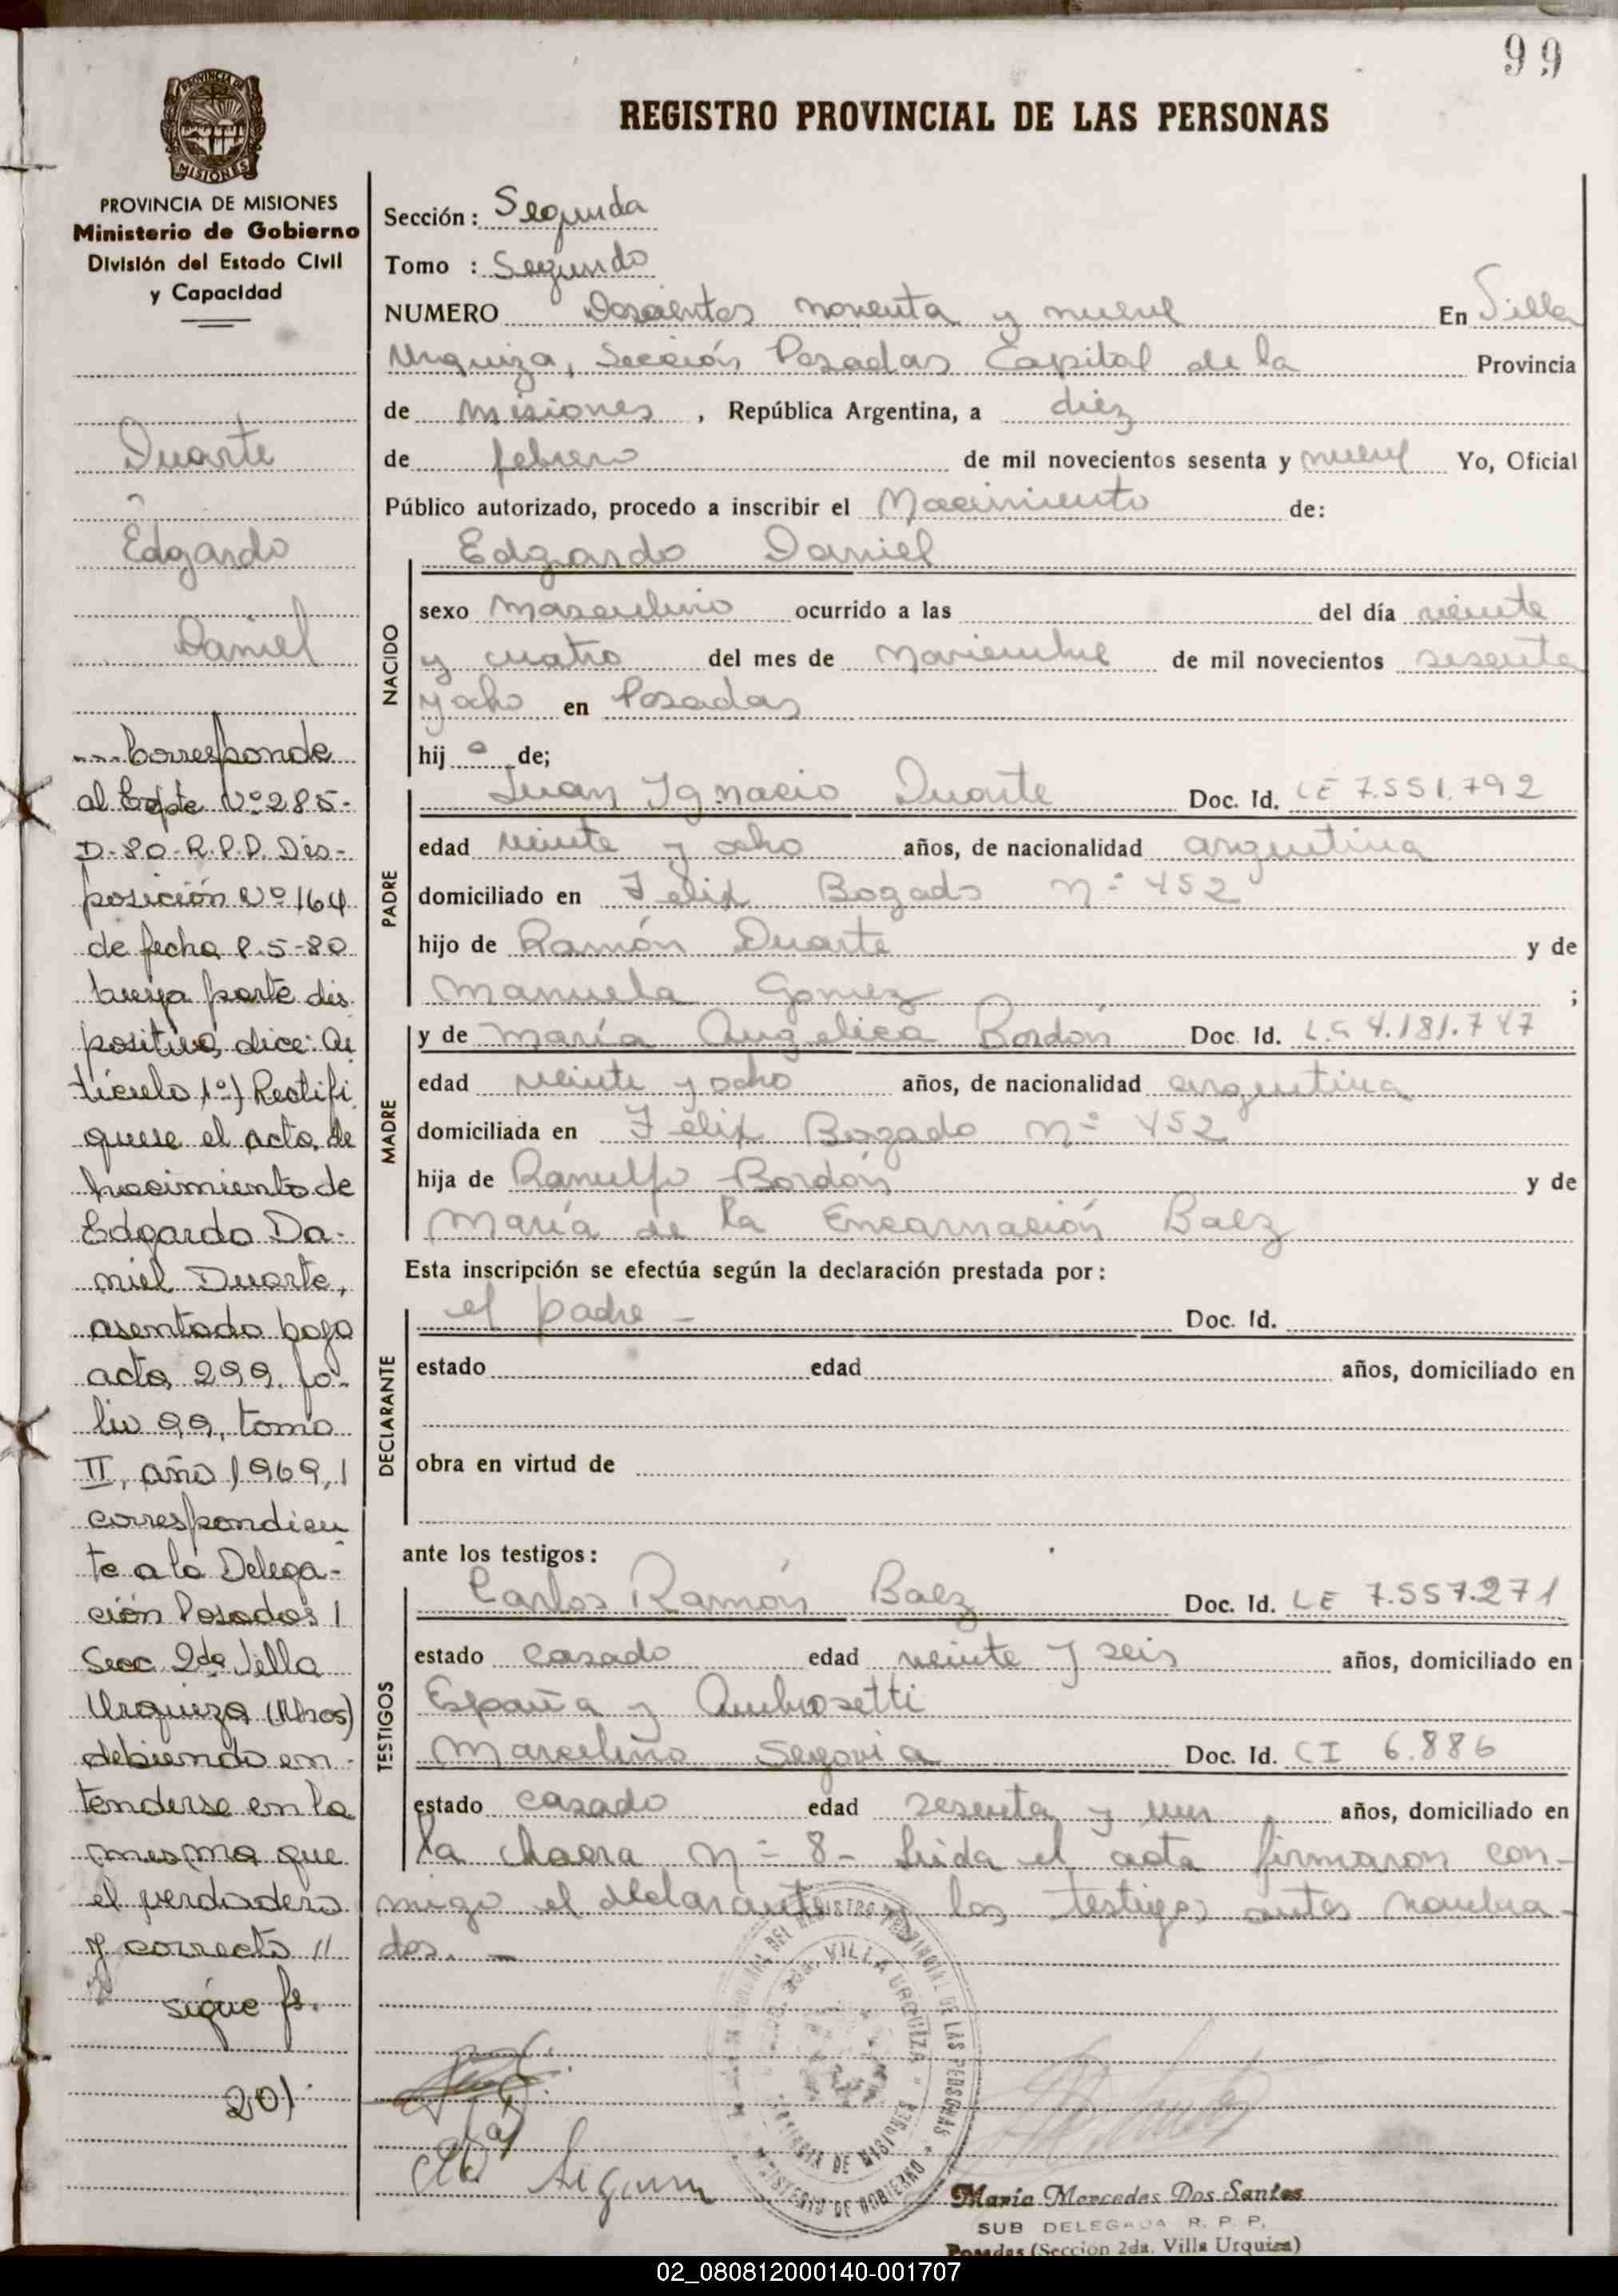 99
REGISTRO PROVINCIAL DE LAS PERSONAS
PROVINCIA DE MISIONES
Ministerio de Gobierno
División del Estado Civil
y Capacidad
Duarte
Edgardo
Daniel
Corresponde
al Expte Nº 285-
D-80-R.P.P. Dis-
posición Nº 164
de fecha 8-5-80
cuya parte dis
positiva dice: Ar
tículo 1º) Rectifi
quese el acta de
nacimiento de
Edgardo Da-
niel Duarte,
asentado bajo
acta 299, fo-
lio 99, tomo
II, año 1969,
correspondien
te a la Delega-
ción Posadas
Secc. 2da Villa
Urquiza (Mnes)
debiendo en-
tenderse en la
misma que
el verdadero
y correcto //
sigue fs.
201
Sección: Segunda
Tomo : Segundo
NUMERO Doscientos noventa y nueve En Villa
Urquiza, Sección Posadas Capital de la Provincia
de Misiones, República Argentina, a diez
de febrero de mil novecientos sesenta y nueve Yo, Oficial
Público autorizado, procedo a inscribir el Nacimiento de:
NACIDO
Edgardo Daniel
sexo masculino ocurrido a las del día veinte
y cuatro del mes de Noviembre de mil novecientos sesenta
y ocho en Posadas
hijo de;
PADRE
Juan Ignacio Duarte Doc. Id. LE 7.551.792
edad veinte y ocho años, de nacionalidad argentina
domiciliado en Felix Bogado nº 452
hijo de Ramón Duarte y de
Manuela Gomez ;
MADRE
y de María Angelica Bordón Doc. Id. LC 4.181.747
edad veinte y ocho años, de nacionalidad argentina
domiciliada en Felix Bogado nº 452
hija de Ranulfo Bordón y de
María de la Encarnación Baez
Esta inscripción se efectúa según la declaración prestada por:
DECLARANTE
el padre - Doc. Id.
estado edad años, domiciliado en
obra en virtud de
ante los testigos:
TESTIGOS
Carlos Ramón Baez Doc. Id. LE 7.557.271
estado casado edad veinte y seis años, domiciliado en
España y Ambrosetti
Marcelino Segovia Doc. Id. CI 6.886
estado casado edad sesenta y un años, domiciliado en
la chacra nº 8- Leida el acta firmaron con-
migo el declarante y los testigos antes nombra-
dos. -
REGISTRO PROVINCIAL DE LAS PERSONAS
VILLA URQUIZA
MINISTERIO DE GOBIERNO
María Mercedes Dos Santos
SUB DELEGADA R. P. P.
Posadas (Seccion 2da. Villa Urquiza)
02_080812000140-001707